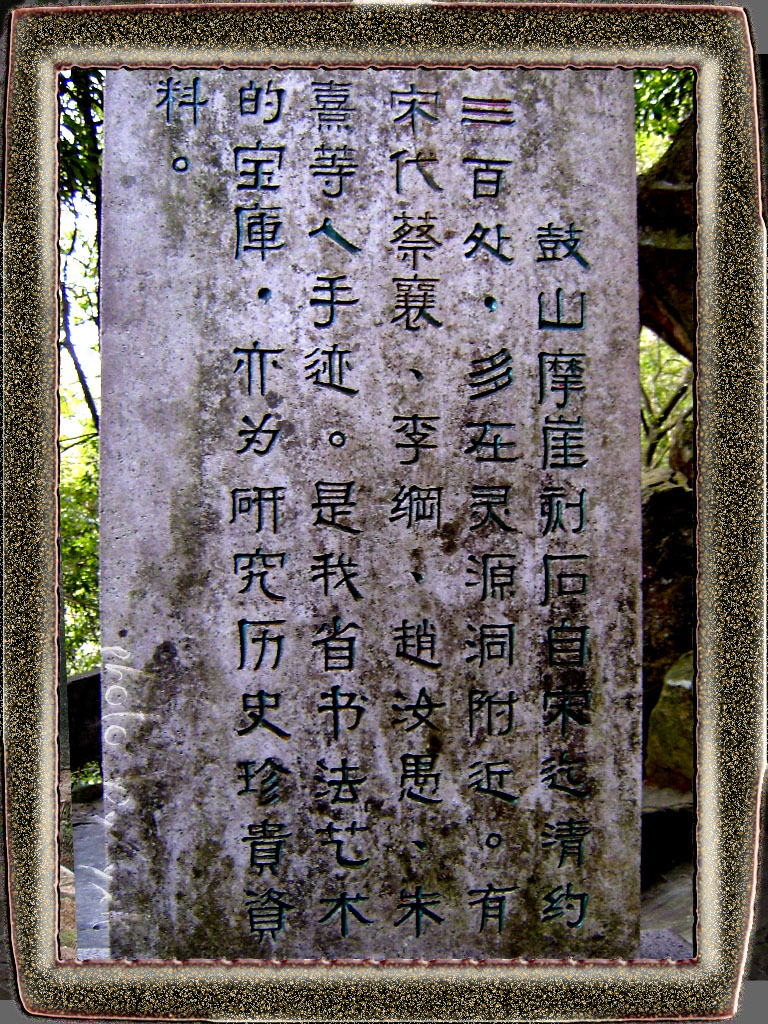 鼓山摩崖刻石自宋迄清约
三百处，多在灵源洞附近。有
宋代蔡襄、李綱、趙汝愚、朱
熹等人手迹。是我省书法艺术
的宝庫，亦为研究历史珍貴資
料。
photo